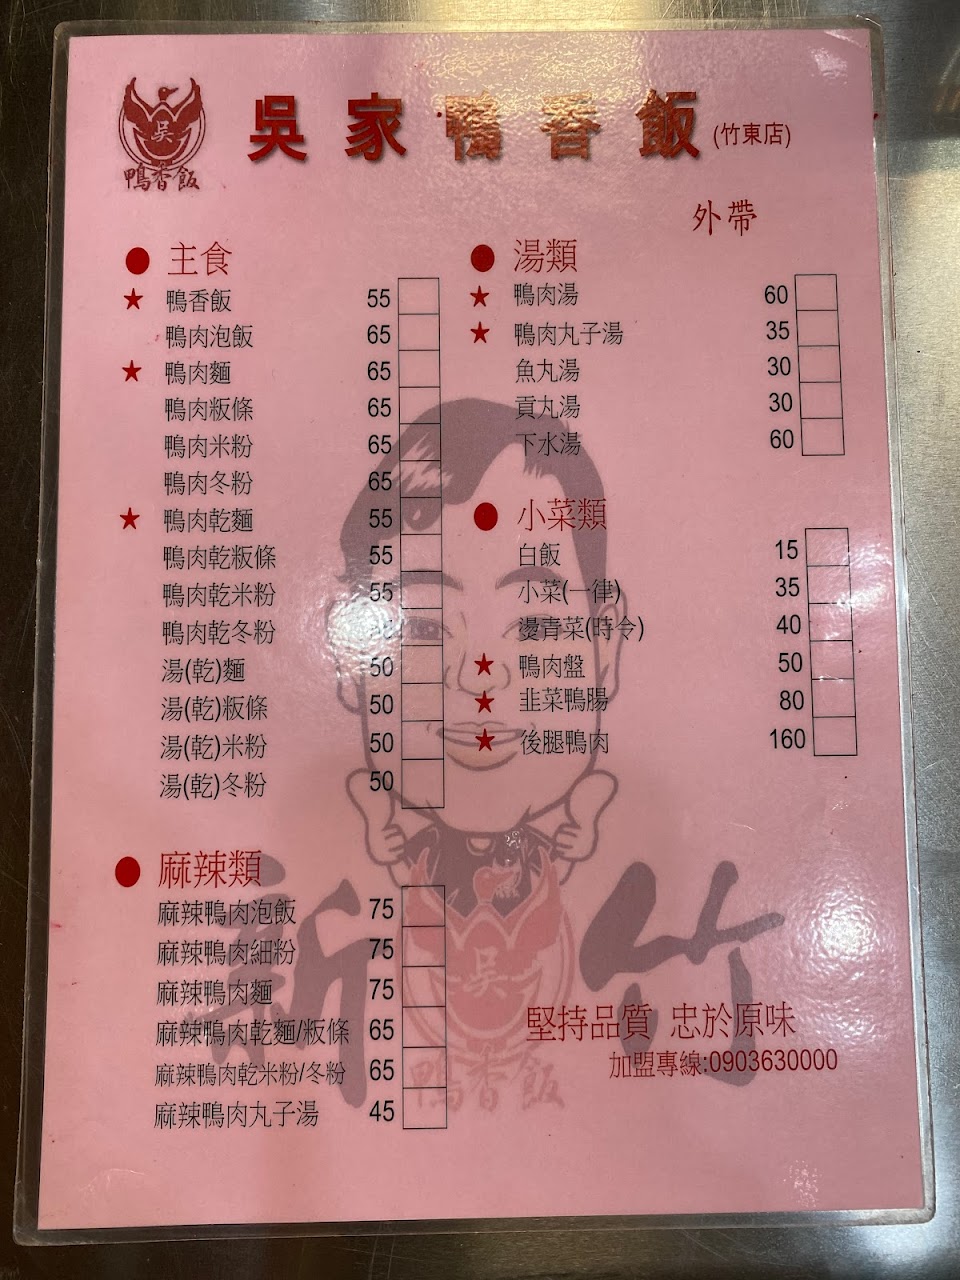 吳
鴨香飯
吳家鴨香飯(竹東店)
外帶
主食
鴨香飯 55
鴨肉泡飯 65
鴨肉麵 65
鴨肉粄條 65
鴨肉米粉 65
鴨肉冬粉 65
鴨肉乾麵 55
鴨肉乾粄條 55
鴨肉乾米粉 55
鴨肉乾冬粉
湯(乾)麵 50
湯(乾)粄條 50
湯(乾)米粉 50
湯(乾)冬粉 50
麻辣類
麻辣鴨肉泡飯 75
麻辣鴨肉細粉 75
麻辣鴨肉麵 75
麻辣鴨肉乾麵/粄條 65
麻辣鴨肉乾米粉/冬粉 65
麻辣鴨肉丸子湯 45
湯類
鴨肉湯 60
鴨肉丸子湯 35
魚丸湯 30
貢丸湯 30
下水湯 60
小菜類
白飯 15
小菜(一律) 35
燙青菜(時令) 40
鴨肉盤 50
韭菜鴨腸 80
後腿鴨肉 160
新竹
吳
鴨香飯
堅持品質 忠於原味
加盟專線:0903630000